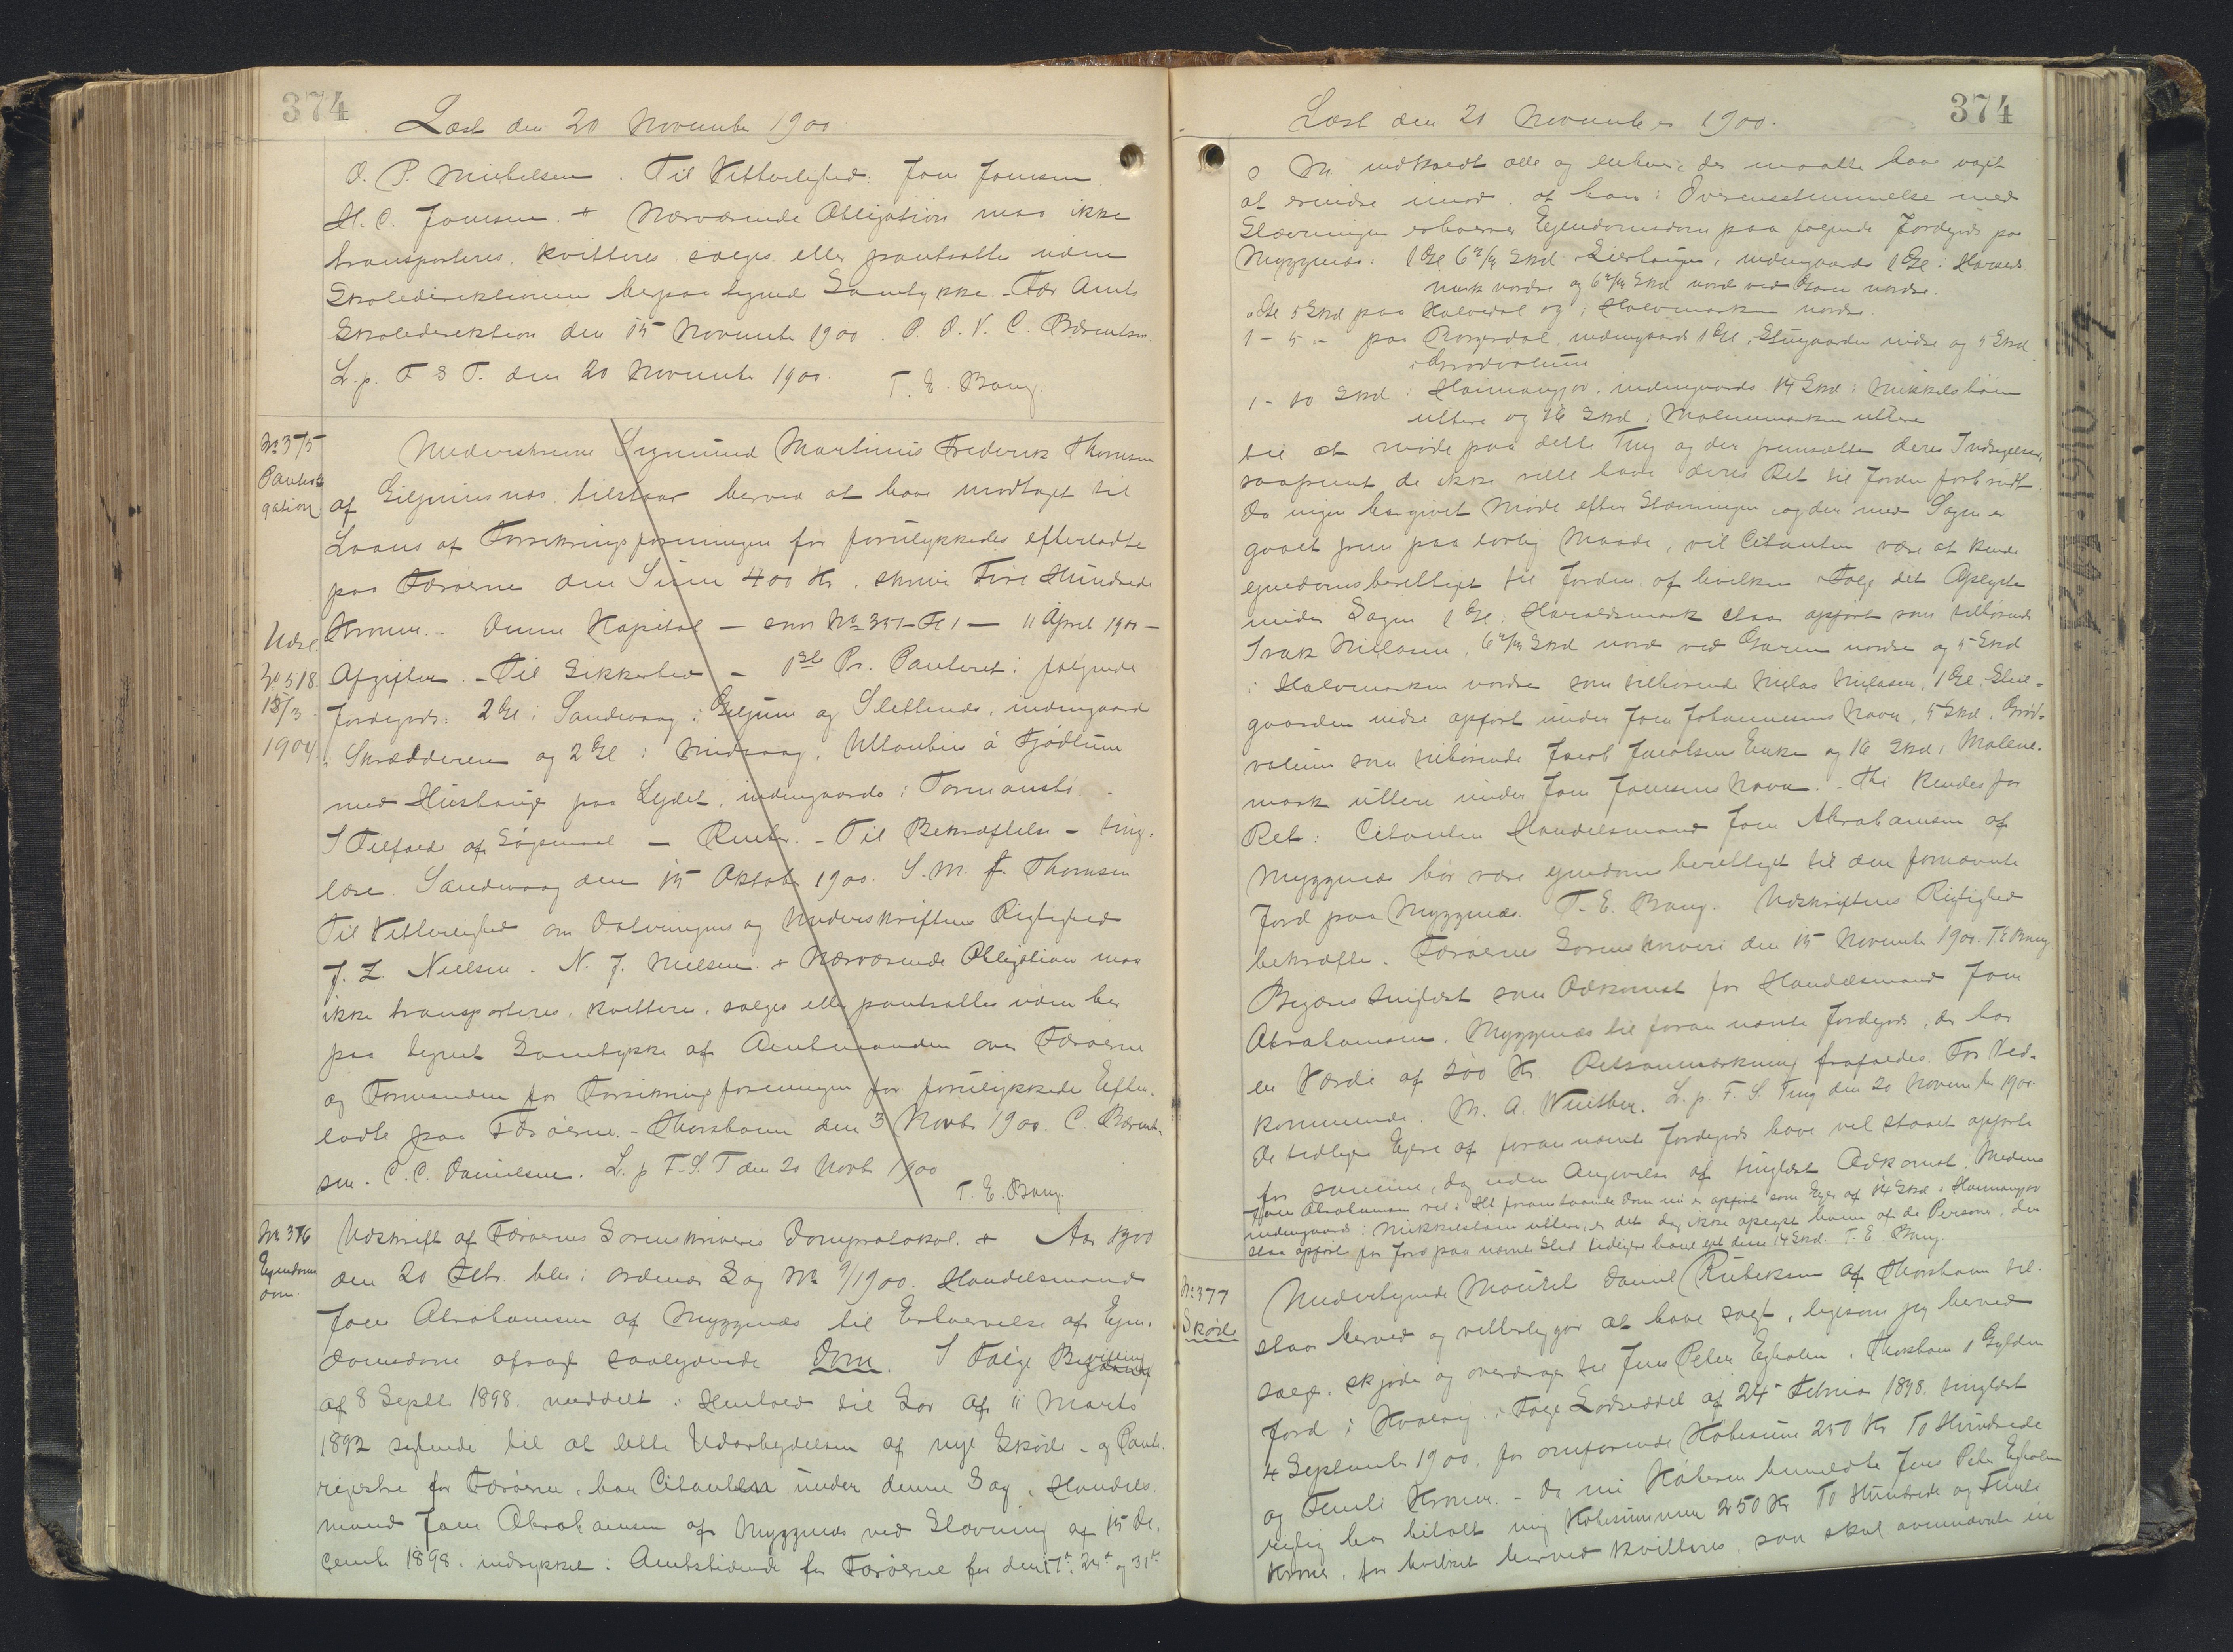 374
Læst den 20 November 1900.
O. P. Michelsen. Til Vitterlighed: Joen Joensen
H. C. Joensen. + Nærværende Obligation maa ikke
transporteres, kvitteres, sælges eller pantsættes uden
Skoledirektionens herpaa tegnede Samtykke. - Fær Amts
Skoledirektion den 15 November 1900. P. D. V. C. Bærentsen.
L. p. F S T. den 20 November 1900. T. E. Bang.
No 375
Pantobli
gation
Udsl.
No 518
15/3
1904
Underskrevne Sigmund Martinus Frederik Thomsen
af Giljumnæs tilstaar herved at have modtaget til
Laans af Forsikringsforeningen for forulykkedes efterladte
paa Færøerne den Sum 400 Kr. skriver Fire Hundrede
Kroner. - Denne Kapital — som No 337 - 11 April 1900 -
Afgifter. - Til Sikkerhed - 1ste Pr. Panteret i følgende
Jordegods: 2 Gl. i Sandevaag i Giljum og Slettende, indengaards
i Skrædderen og 2 Gl i Midvaag,
med Hushauge paa Lydet, indengaards i Formanstø.
I Tilfælde af Søgsmaal — Renter. - Til Bekræftelse - ting-
læse. Sandevaag den 15 Oktober 1900. S. M. F. Thomsen
Til Vitterlighed om Dateringens og Underskriftens Rigtighed
J. Z. Nielsen. N. J. Nielsen. + Nærværende Obligation maa
ikke transporteres, kvitteres, sælges eller pantsættes uden her
paa tegnet Samtykke af Amtmanden over Færøerne
og Formanden for Forsikringsforeningen for forulykkede Efter-
ladte paa Færøerne. - Thorshavn den 3 Novbr 1900. C. Bærent-
sen. C. C. Danielsen. L. p F. S. T den 20 Novb 1900
T. E. Bang.
No 376
Ejendoms
dom.
Udskrift af Færøernes Sorenskriveris Domprotokol. + Aar 1900
den 20 Febr. blev i ordinær Sag No 9/1900. Handelsmand
Joen Abrahamsen af Myggenæs til Erhvervelse af Ejen-
domsdom afsagt saalydende Dom. I Følge Bevilling
af 8 Septb 1898. meddelt i Henhold til Lov af 11 Marts
1892 sigtende til at lette Udarbejdelsen af nye Skøde- og Pante-
registre for Færøerne, har Citanten under denne Sag, Handels-
mand Joen Abrahamsen af Myggenæs ved Stævning af 15 De-
cember 1898. indrykket i Amtstidende for Færøerne for den 17de 24de og 31te
374
Læst den 20 November 1900.
o M. indkaldt alle og enhver, der maatte have noget
at erindre imod, at han i Overensstemmelse med
Stævningen erhverver Ejendomsdom paa følgende Jordegods paa
Myggenæs: 1 Gl 6 2/4 Skd i indengaards 1 Gl. i Haralds
mark nordre og 6 2/4 Skd nord ved Garen nordre.
o Gl 5 Skd paa Kalvedal og i Halvmarken nordre.
1 - 5 - paa indengaards 1 Gl. i Stuegaarden nidre og 5 Skd
i Grødvolum
1 - 10 Skd i indengaards 14 Skd i Mikkelsham
uttere og 16 Skd i Malenemarken uttere
til at møde paa dette Ting og der fremsætte deres Indsigelser,
saafremt de ikke ville have deres Ret til Jorden forbrudt.
Da ingen har givet Møde efter Stævningen og der med Sagen er
gaaet frem paa lovlig Maade, vil Citanten være at kende
ejendomsberettiget til Jorden, af hvilken i Følge det Oplyste
under Sagen 1 Gl. i Haraldsmark staar opført som tilhørende
Isak Niclasen, 6 2/4 Skd nord ved Garen nordre og 5 Skd
i Halvmarken nordre som tilhørende Niclas Niclasen, 1 Gl. i Stue-
gaarden nidre opført under Joen Johannesens Navn, 5 Skd. i Grød-
volum som tilhørende Jacob Jacobsens Enke og 16 Skd. i Malene-
mark uttere under Joen Joensens Navn. - Thi kendes for
Ret: Citanten Handelsmand Joen Abrahamsen af
Myggenæs bør være ejendomsberettiget til den fornævnte
Jord paa Myggenæs. T. E. Bang. Udskriftens Rigtighed
bekræfter. Færøernes Sorenskriveri den 15 November 1900. T E Bang.
Begjæres tinglæst som Adkomst for Handelsmand Joen
Abrahamsen, Myggenæs til foran nævnte Jordegods, der har
en Værdi af 200 Kr. Retsanmærkning frafaldes. For Ved-
kommende. M. A. Winther. L. p. F. S. Ting den 20 November 1900.
De tidligere Ejere af foran nævnte Jordegods have vel staaet opførte
for samme, dog uden Angivelse af tinglæst Adkomst. Medens
Joen Abrahamsen vel i Flt foranstaaende Dom nu er opført som Ejer af 14 Skd i
indengaards i Mikkelsham uttere, er det dog ikke oplyst hvem af de Personer, der
staa opført for Jord paa nævnte Sted tidligere have ejet disse 14 Skd. T. E Bang.
No 377
Skøde
Undertegnede Mouritz Daniel Rubeksen af Thorshavn til-
staar herved og vitterliggør at have solgt, ligesom jeg herved
sælger, skjøder og overdrager til Jens Peter Egholm i Thorshavn 1 Gylden
Jord i Hvalvig, i Følge Lodseddel af 24de Februar 1898. tinglæst
4 September 1900, for omforenede Købesum 250 Kr To Hundrede
og Femti Kroner. - Da nu Køberen bemeldte Jens Peter Egholm
rigtig har betalt mig Købesummen 250 Kr To Hundrede og Femti
Kroner, for hvilket herved kvitteres, saa skal ovennævnte in